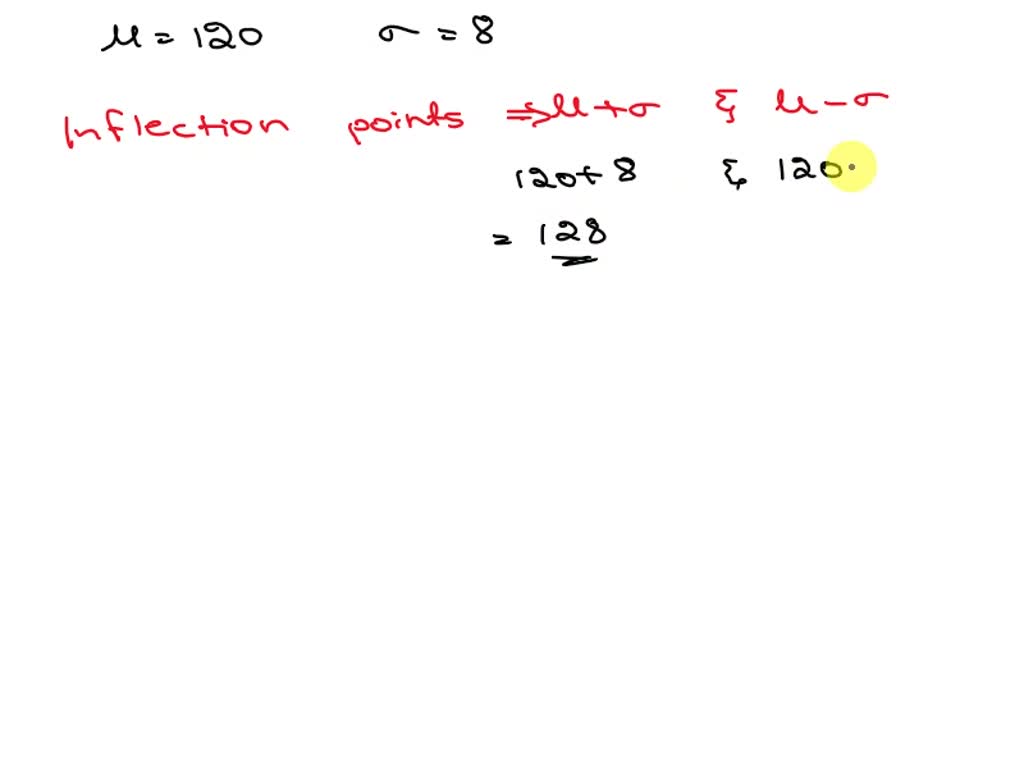 μ = 120 σ = 8
Inflection points ⇒ μ + σ & μ - σ
120 + 8 & 120
= 128